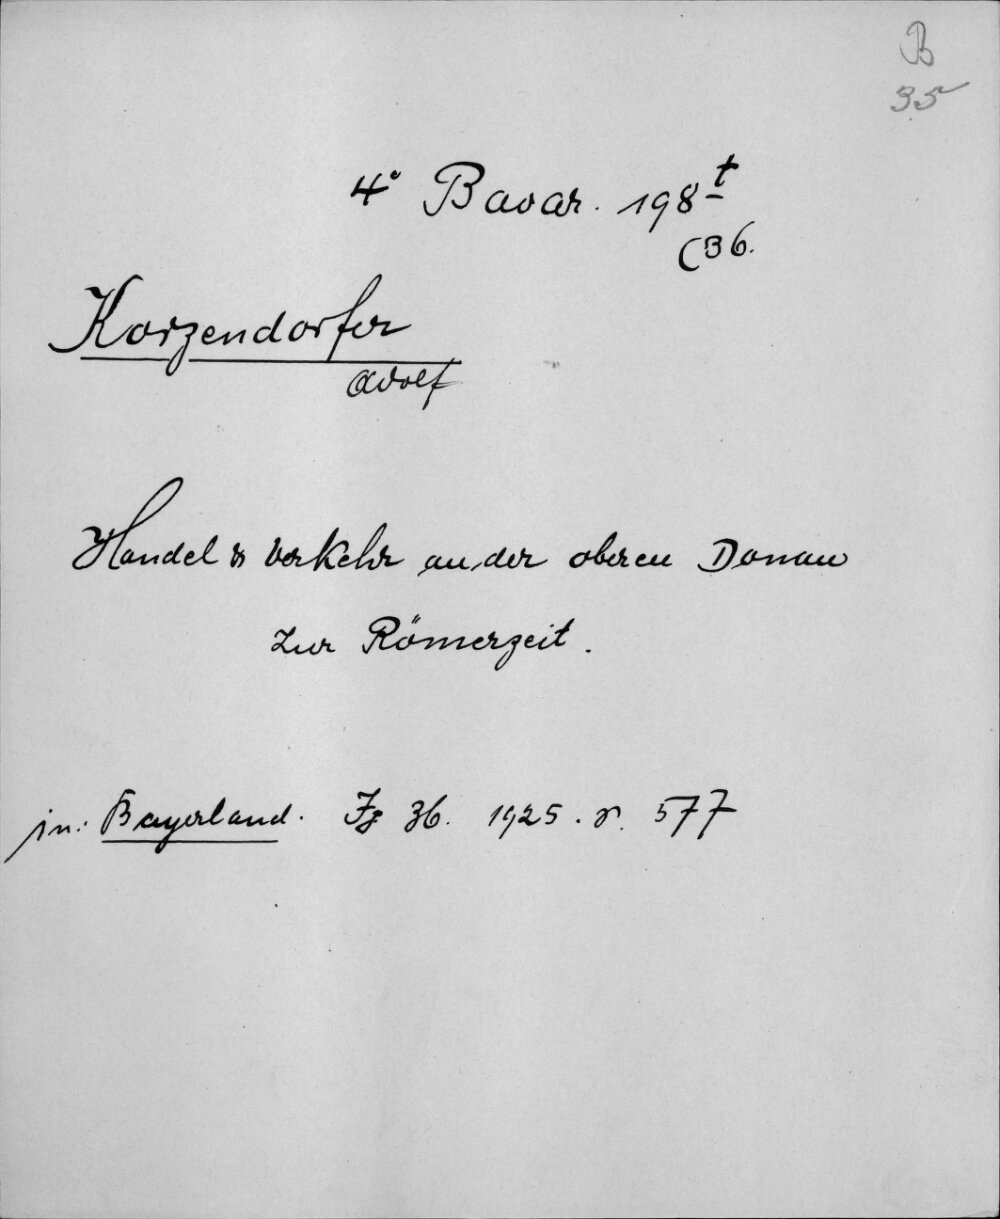 B
35
4° Bavar. 198 t
(36.
Korzendorfer
Adolf
Handel & Verkehr an der oberen Donau
zur Römerzeit.
in: Bayerland. Jg 36. 1925. S. 577